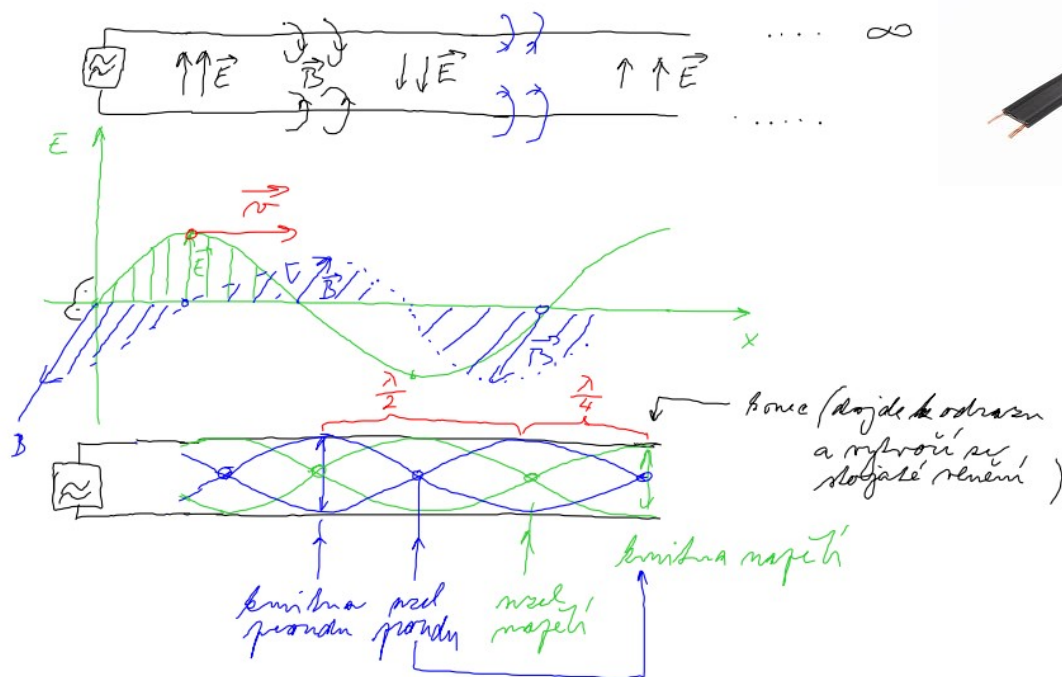 .... ∞
E⃗ B⃗ E⃗ E⃗
.....
E
v⃗
E⃗ B⃗
B⃗
x
λ/2 λ/4
B
konec (dojde k odrazu
a vytvoří se
stojaté vlnění)
kmitna napětí
kmitna uzel uzel
proudu proudu napětí